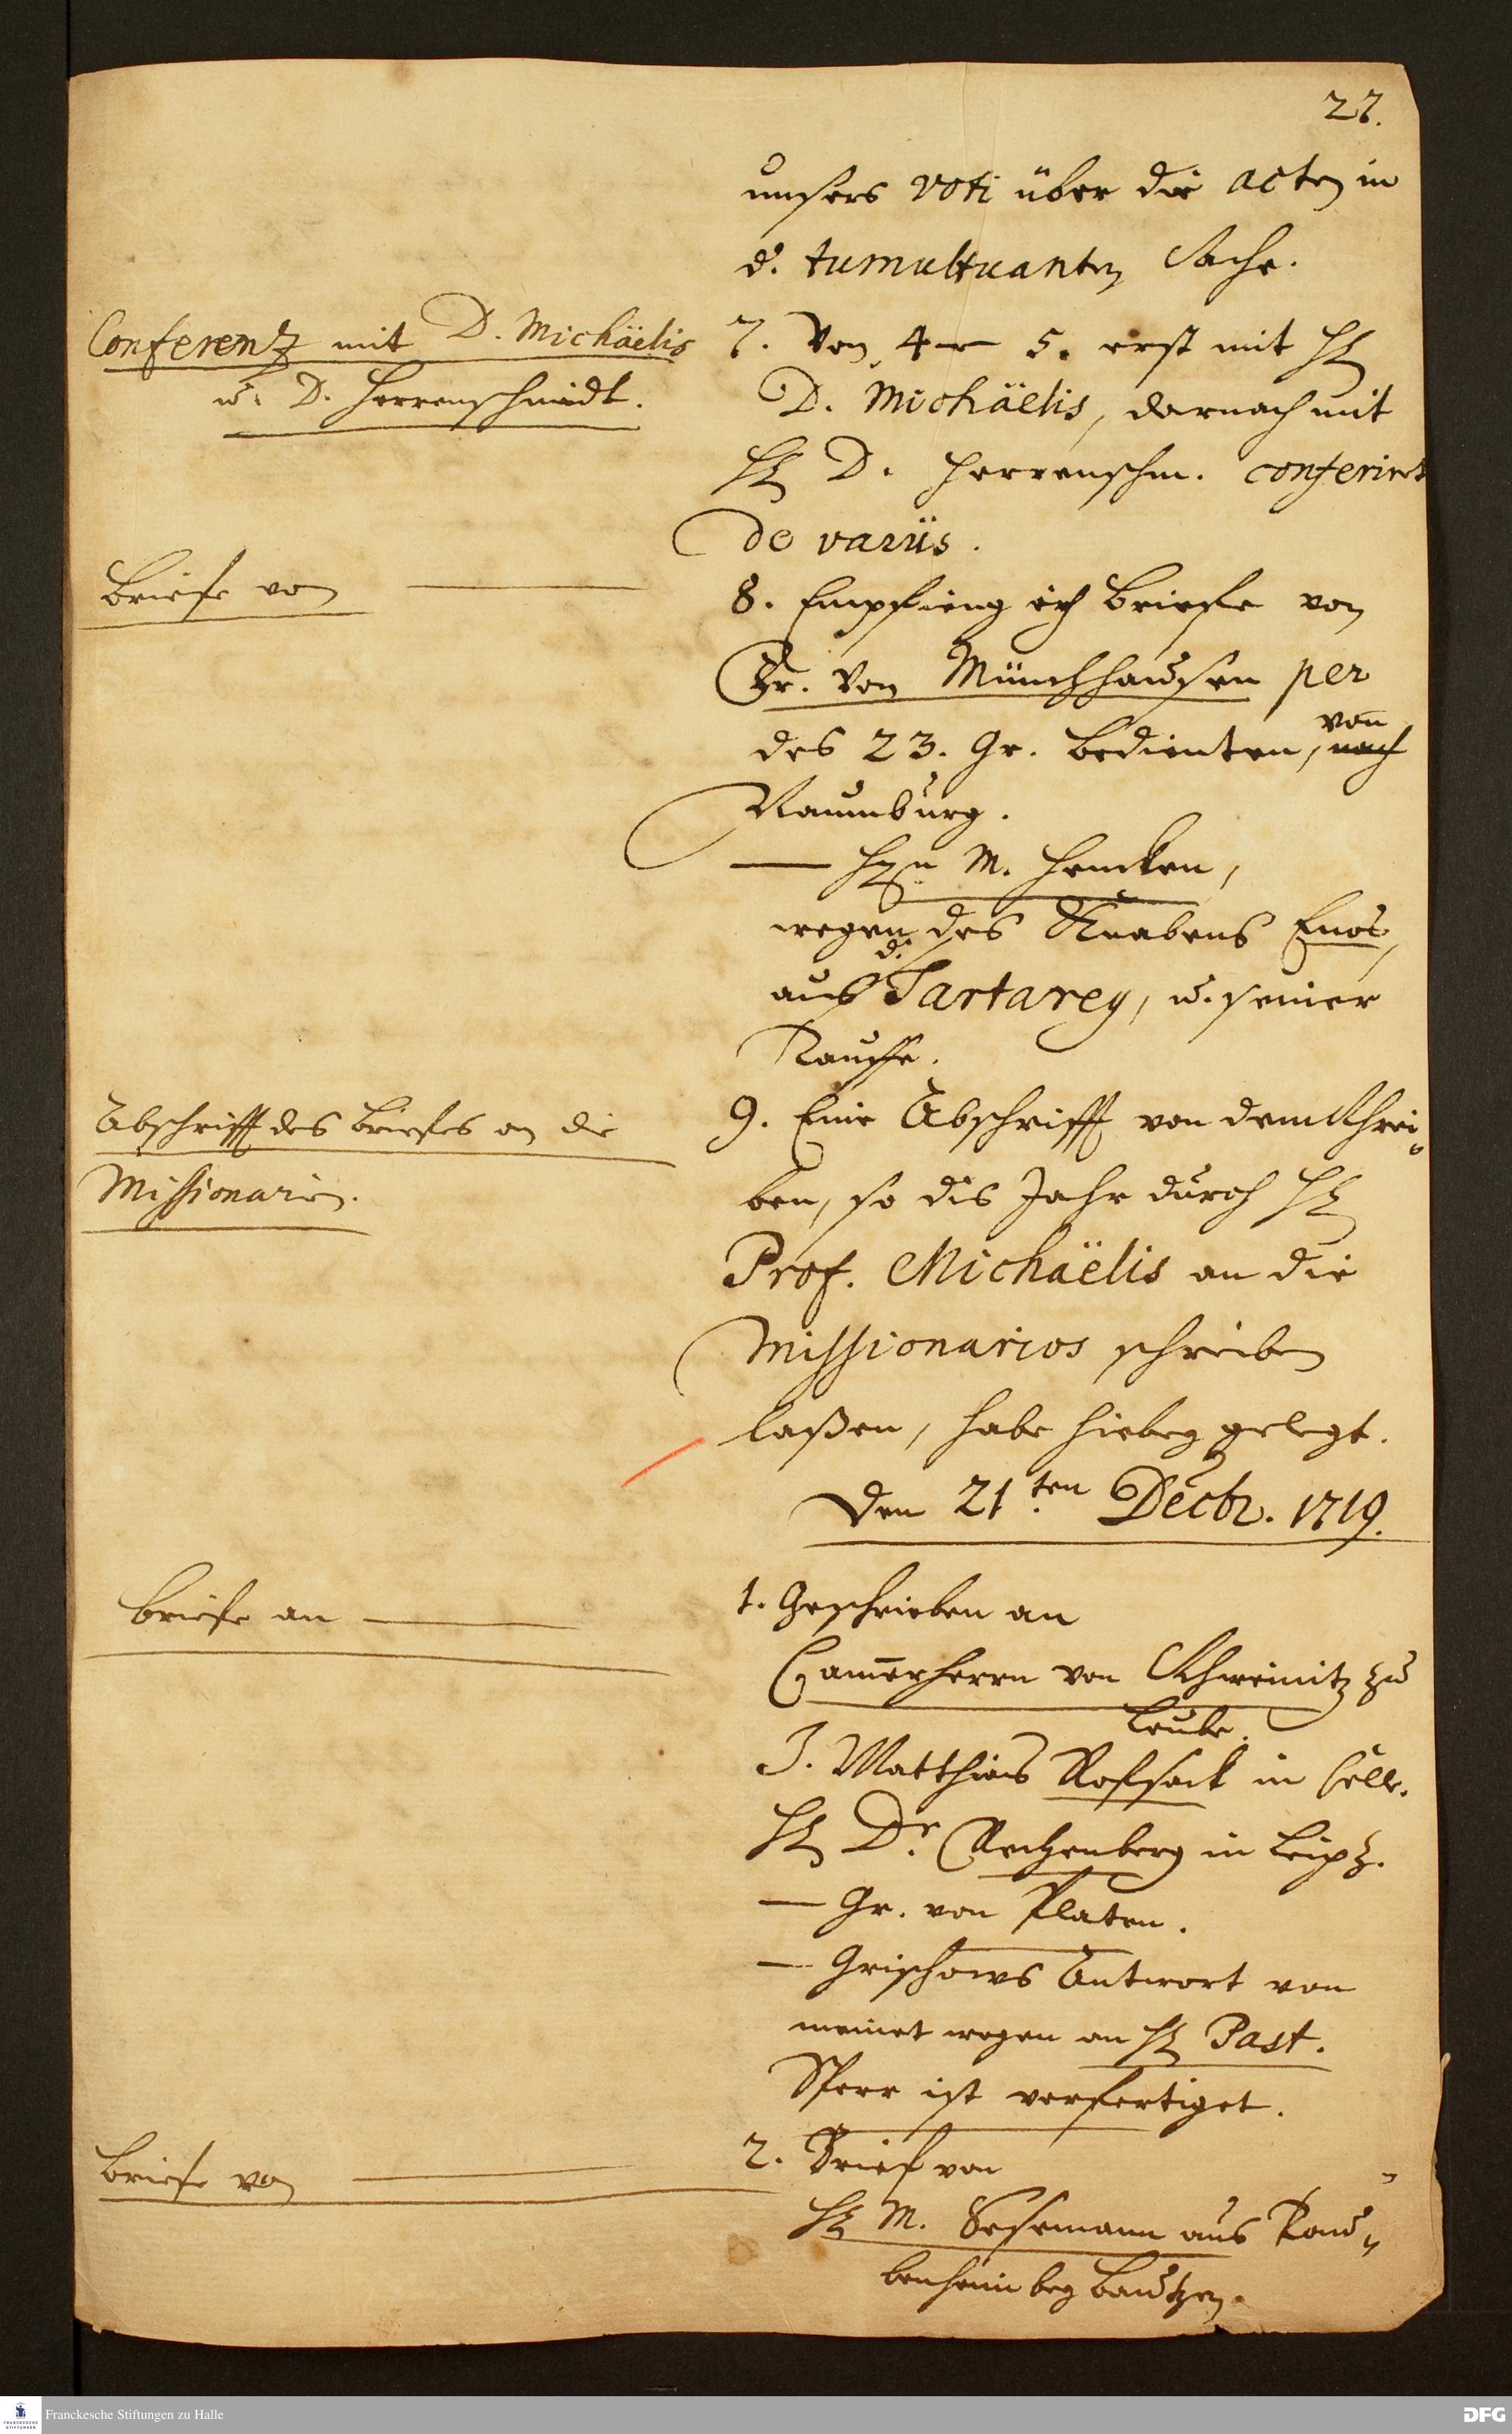 27.
unsers voti über die acten in
d. tumultuanten Sache.
Conferentz mit D. Michäelis
u. D. Herrenschmidt.
7. Von 4 - 5. erst mit H
D. Michäelis, darnach mit
H D. Herrenschm. conferiret
de variis.
Briefe von
8. Empfieng ich Briefe von
Fr. von Münchhausen per
des 23. Gr. Bedienten, von nach
Naumburg.
— Hn M. Hencken,
wegen des Knabens Enos,
aus d. Tartarey, u. seiner
Tauffe.
Abschrifft des Briefes an die
Missionarien.
9. Eine Abschrifft von dem Schrei-
ben, so dis Jahr durch H
Prof. Michaëlis an die
Missionarios schreiben
laßen, habe hiebey gelegt.
Den 21ten Decbr. 1719.
Briefe an
1. Geschrieben an
Camerherrn von Schweinitz zu
Leube.
J. Matthias Rossack in Cell.
H Dr. Rechenberg in Leipz.
— Gr. von Platen.
— Grischows Antwort von
meinet wegen an H Past.
Sperr ist verfertiget.
Briefe von
2. Brief von
H M. Sesemann aus
bey Bautzen.
Franckesche Stiftungen zu Halle
DFG